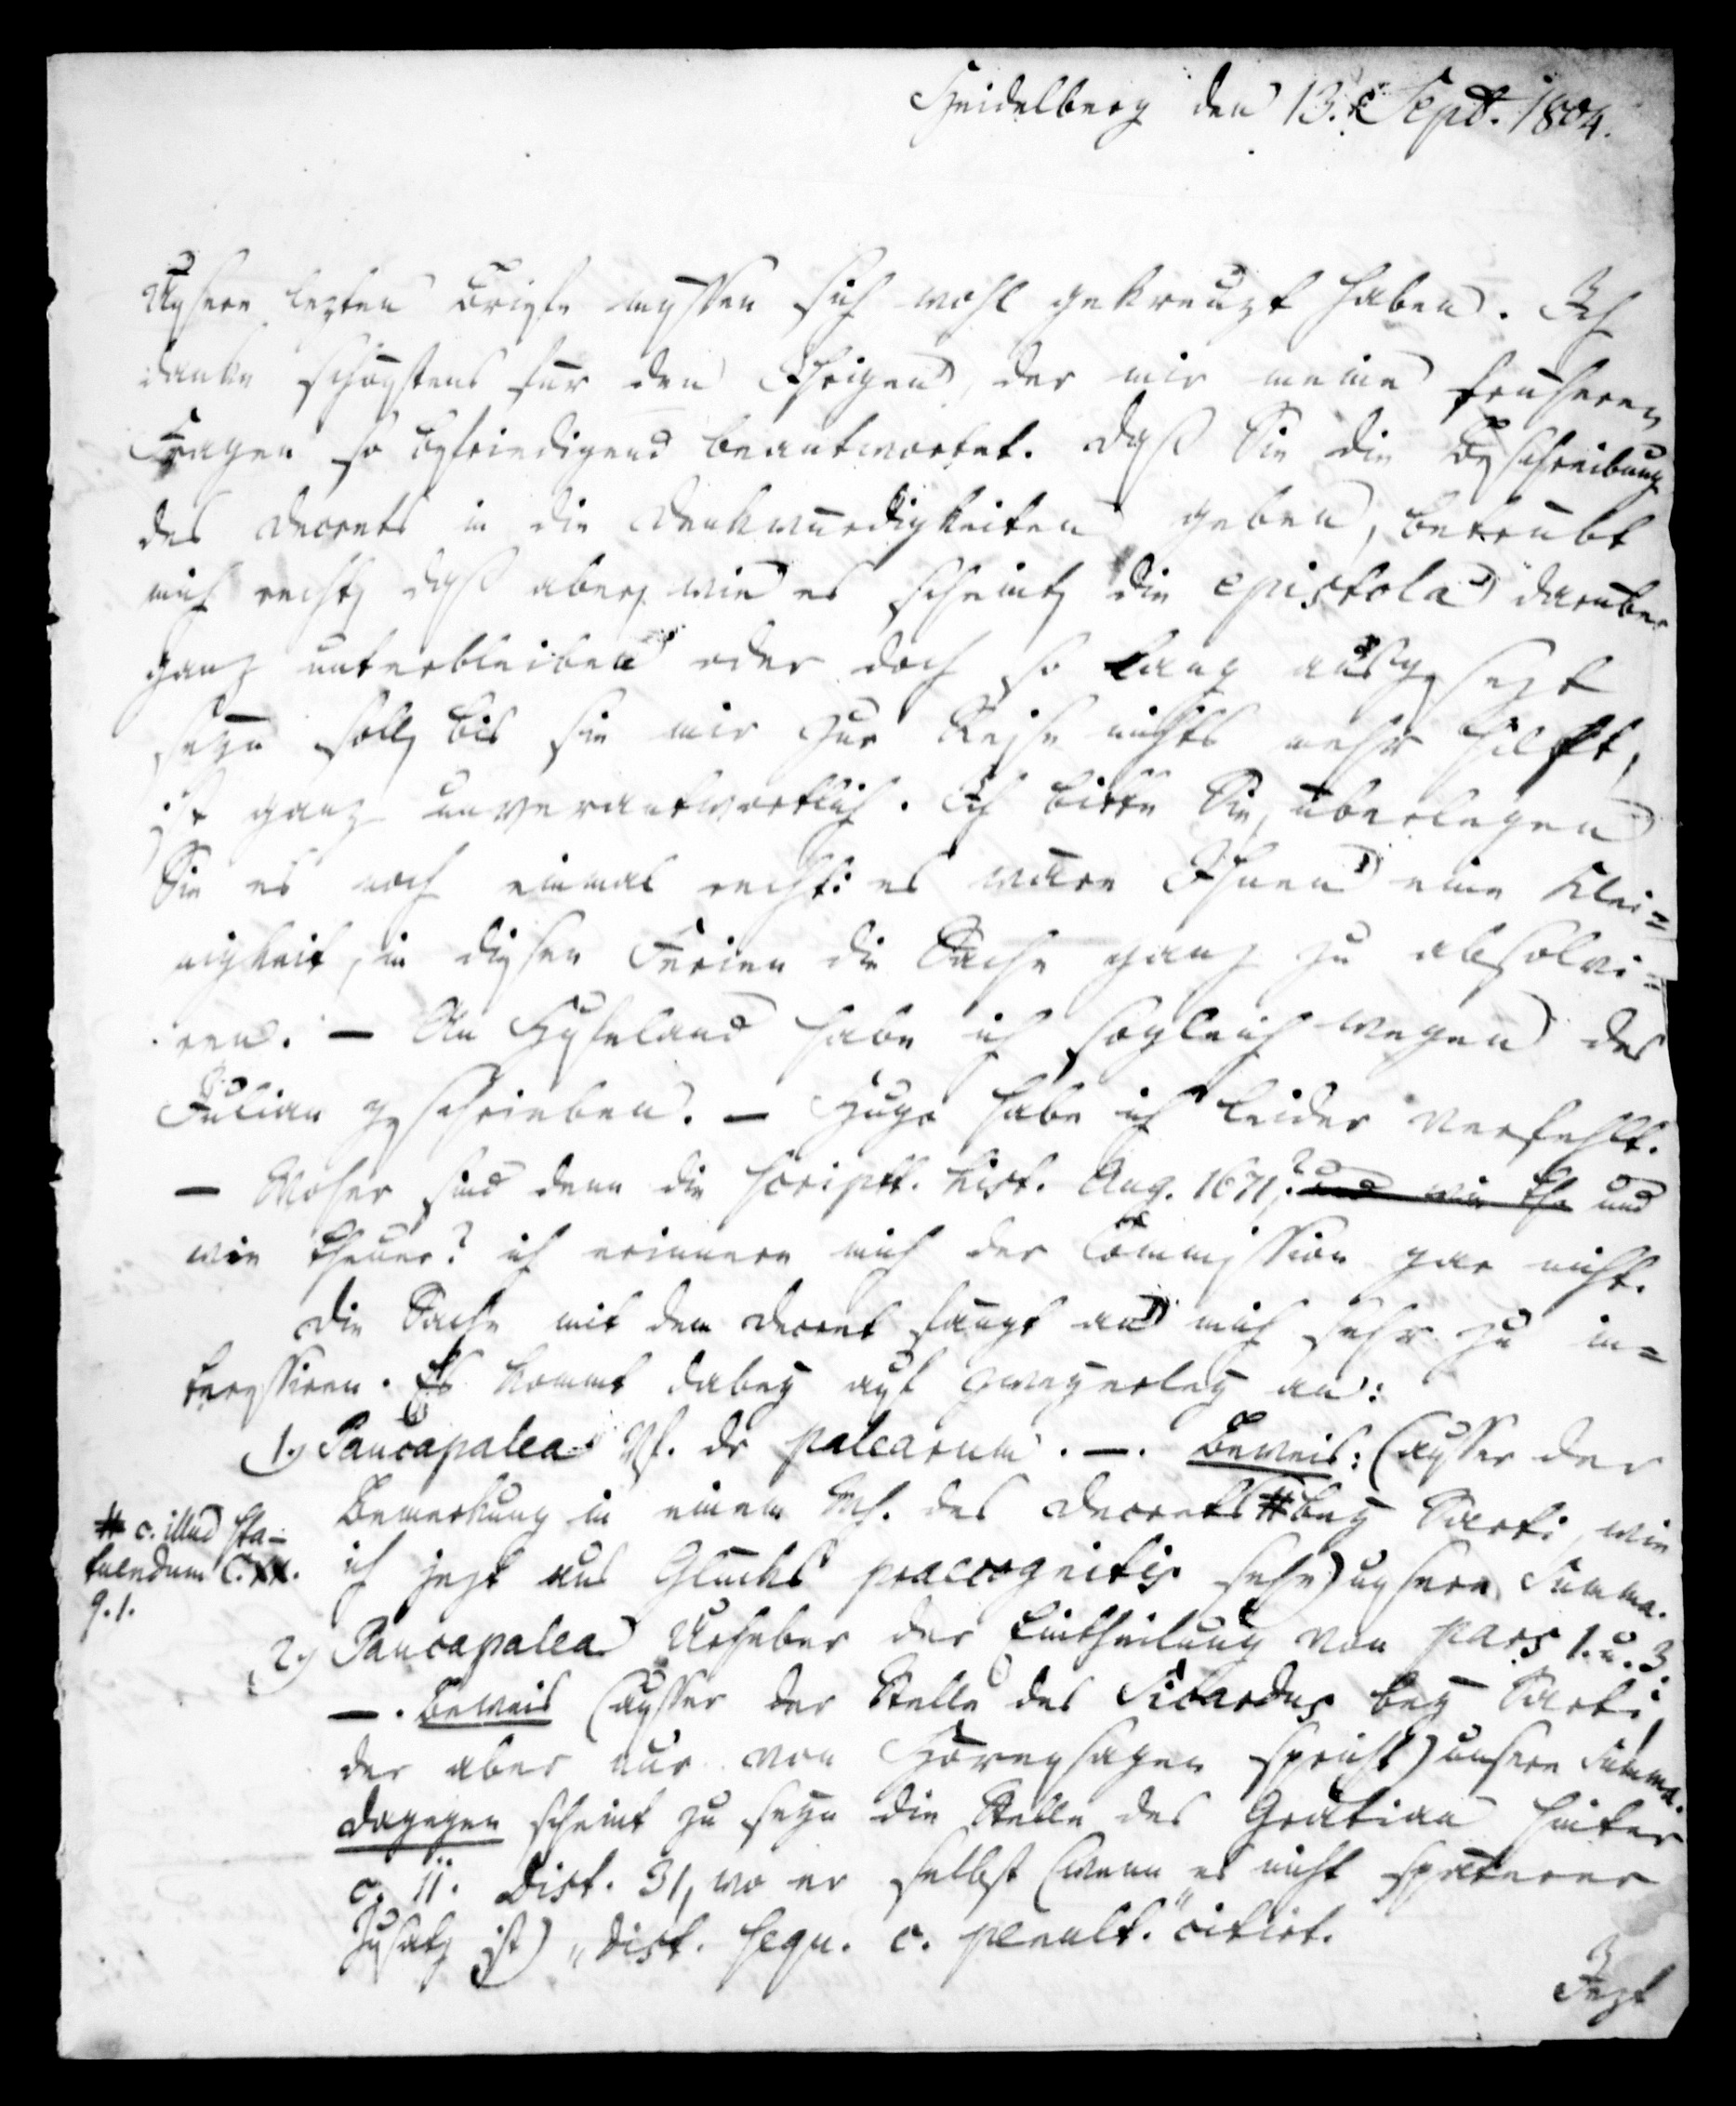 Heidelberg den 13. Sept. 1804.
Unsere lezten Briefe müssen sich wohl gekreuzt haben. Ich
danke schönstens für den Ihrigen, der mir meine früheren
Fragen so befriedigend beantwortet. Daß Sie die Beschreibung
des Decrets in die Denkwürdigkeiten geben, betrübt
mich recht, daß aber, wie es scheint, die epistola darüber
ganz unterbleiben oder doch so lang ausgesezt
seyn soll, bis sie mir zur Reise nichts mehr hilft,
ist ganz unverantwortlich. Ich bitte Sie, überlegen
Sie es noch einmal recht: es wäre Ihnen eine Klei=
nigkeit, in diesen Ferien die Sache ganz zu absolvi=
ren. — An Hufeland habe ich sogleich wegen des
Julian geschrieben. — Hugo habe ich leider verfehlt.
— Woher sind denn die scriptt. hist. Aug. 1671? und wie th. und
wie theuer? ich erinnere mich der Commission gar nicht.
Die Sache mit dem Decret fängt an mich sehr zu in=
teressiren. Es kommt dabey auf zweyerley an:
1.) Paucapalea Vf. der palearum. —. Beweis: (ausser der
Bemerkung in einem Ms. des Decrets # bey Sarti, wie
# c. illud sta-
tuendum C. XX.
q. 1.
ich jezt aus Glücks praecognitis sehe) unsere Summa.
2.) Paucapalea Urheber der Eintheilung von pars 1. u. 3.
—. Beweis (ausser der Stelle des Sicardus bey Sarti,
der aber nur von Hörensagen spricht) unsere Summa.
Dagegen scheint zu seyn die Stelle des Gratian hinter
c. 11. Dist. 31, wo er selbst (wenn es nicht späterer
Zusatz ist) „Dist. sequ. c. penult." citirt.
Jezt